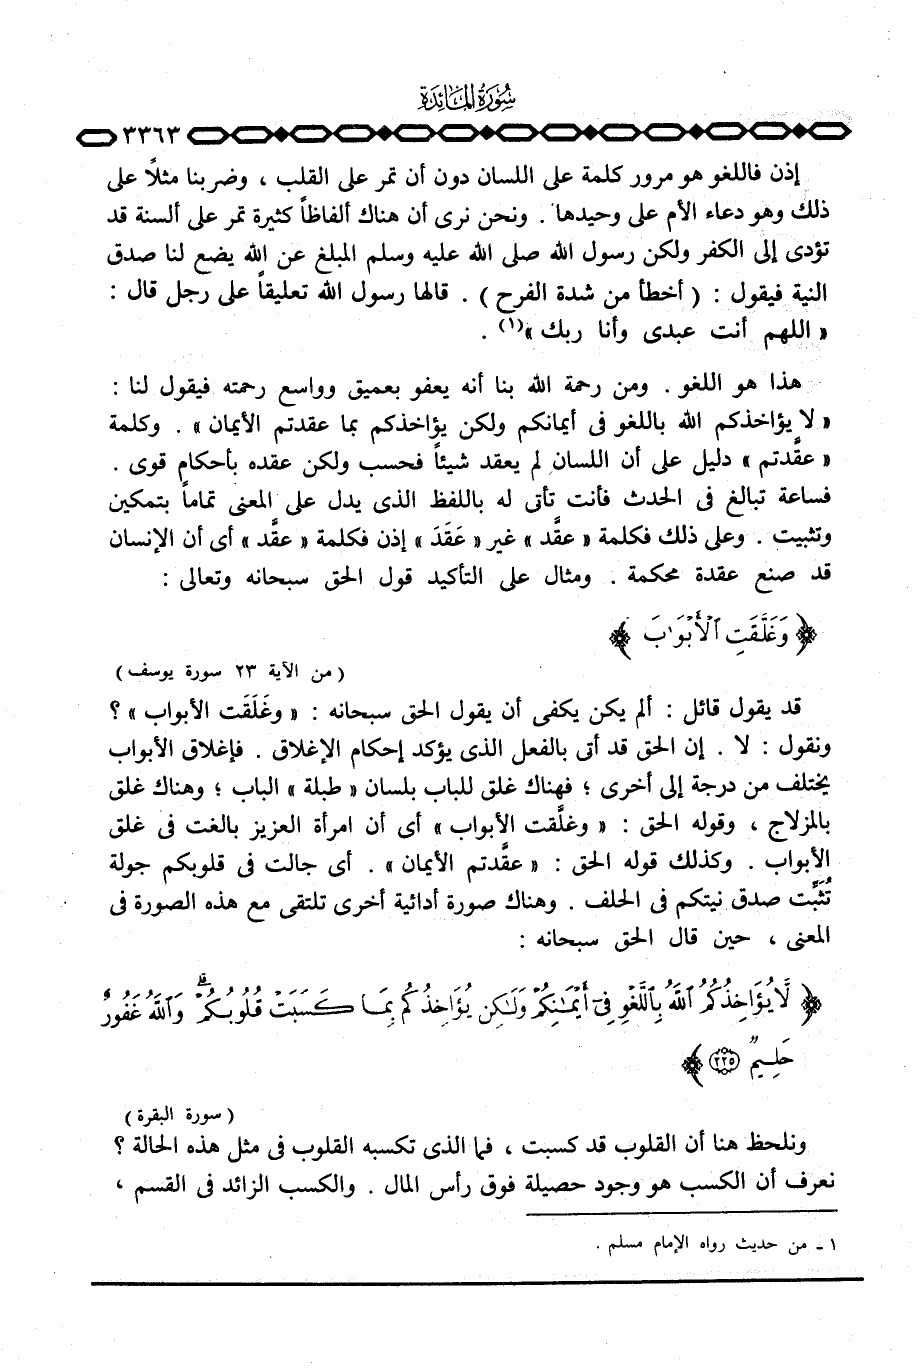 سُورَةُ المَائِدَةِ
٣٣٦٣
إذن فاللغو هو مرور كلمة على اللسان دون أن تمر على القلب ، وضربنا مثلاً على
ذلك وهو دعاء الأم على وحيدها . ونحن نرى أن هناك ألفاظاً كثيرة تمر على ألسنة قد
تؤدى إلى الكفر ولكن رسول الله صلى الله عليه وسلم المبلغ عن الله يضع لنا صدق
النية فيقول : ( أخطأ من شدة الفرح ) . قالها رسول الله تعليقاً على رجل قال :
« اللهم أنت عبدى وأنا ربك »(١) .
هذا هو اللغو . ومن رحمة الله بنا أنه يعفو بعميق وواسع رحمته فيقول لنا :
« لا يؤاخذكم الله باللغو فى أيمانكم ولكن يؤاخذكم بما عقدتم الأيمان » . وكلمة
« عقَّدتم » دليل على أن اللسان لم يعقد شيئاً فحسب ولكن عقده بأحكام قوى .
فساعة تبالغ فى الحدث فأنت تأتى له باللفظ الذى يدل على المعنى تماماً بتمكين
وتثبيت . وعلى ذلك فكلمة « عقَّد » غير « عَقَدَ » إذن فكلمة « عقَّد » أى أن الإنسان
قد صنع عقدة محكمة . ومثال على التأكيد قول الحق سبحانه وتعالى :
﴿ وَغَلَّقَتِ ٱلْأَبْوَٰبَ ﴾
( من الآية ٢٣ سورة يوسف )
قد يقول قائل : ألم يكن يكفى أن يقول الحق سبحانه : « وغَلَقَت الأبواب » ؟
ونقول : لا . إن الحق قد أتى بالفعل الذى يؤكد إحكام الإغلاق . فإغلاق الأبواب
يختلف من درجة إلى أخرى ؛ فهناك غلق للباب بلسان « طبلة » الباب ؛ وهناك غلق
بالمزلاج ، وقوله الحق : « وغلَّقت الأبواب » أى أن امرأة العزيز بالغت فى غلق
الأبواب . وكذلك قوله الحق : « عقَّدتم الأيمان » . أى جالت فى قلوبكم جولة
تُثَبِّت صدق نيتكم فى الحلف . وهناك صورة أدائية أخرى تلتقى مع هذه الصورة فى
المعنى ، حين قال الحق سبحانه :
﴿ لَّا يُؤَاخِذُكُمُ ٱللَّهُ بِٱللَّغْوِ فِىٓ أَيْمَٰنِكُمْ وَلَٰكِن يُؤَاخِذُكُم بِمَا كَسَبَتْ قُلُوبُكُمْ ۗ وَٱللَّهُ غَفُورٌ
حَلِيمٌ ٢٢٥ ﴾
( سورة البقرة )
ونلحظ هنا أن القلوب قد كسبت ، فما الذى تكسبه القلوب فى مثل هذه الحالة ؟
نعرف أن الكسب هو وجود حصيلة فوق رأس المال . والكسب الزائد فى القسم ،
١ ـ من حديث رواه الإمام مسلم .